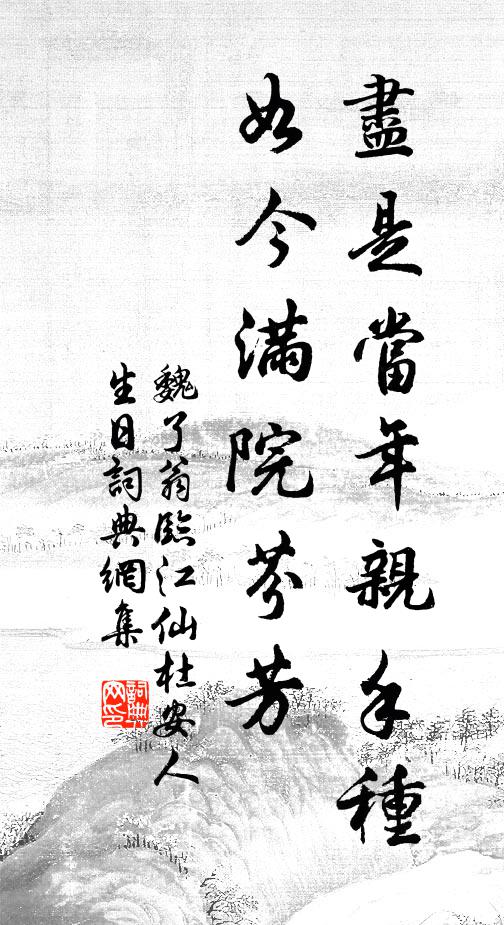 盡是當年親手種
如今滿院芬芳
魏了翁臨江仙杜安人
生日詞典網集
詞典网印